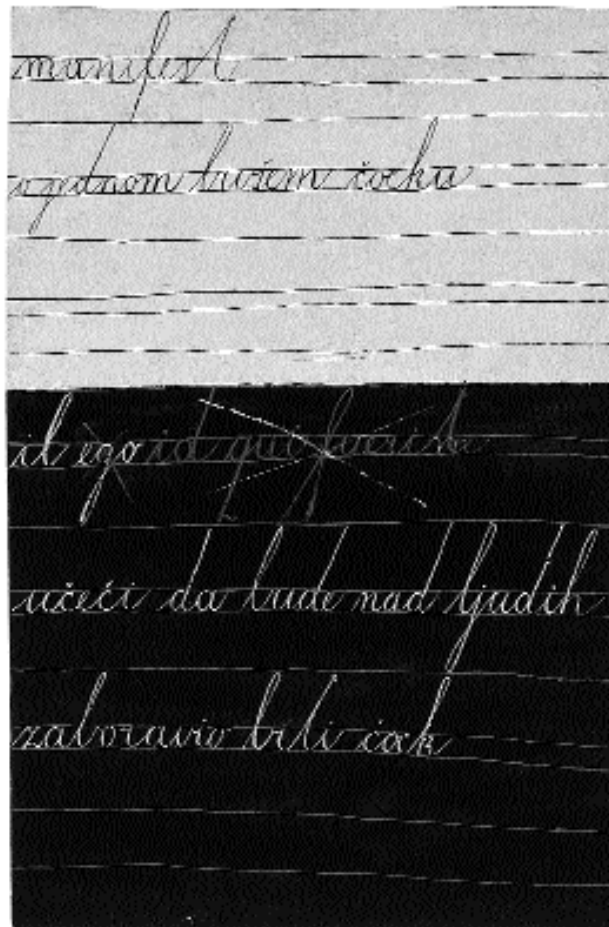 manifest
o jednom bivšem čoeku
il ego id qui
učeći da bude nad ljudih
zaboravio biti čoek